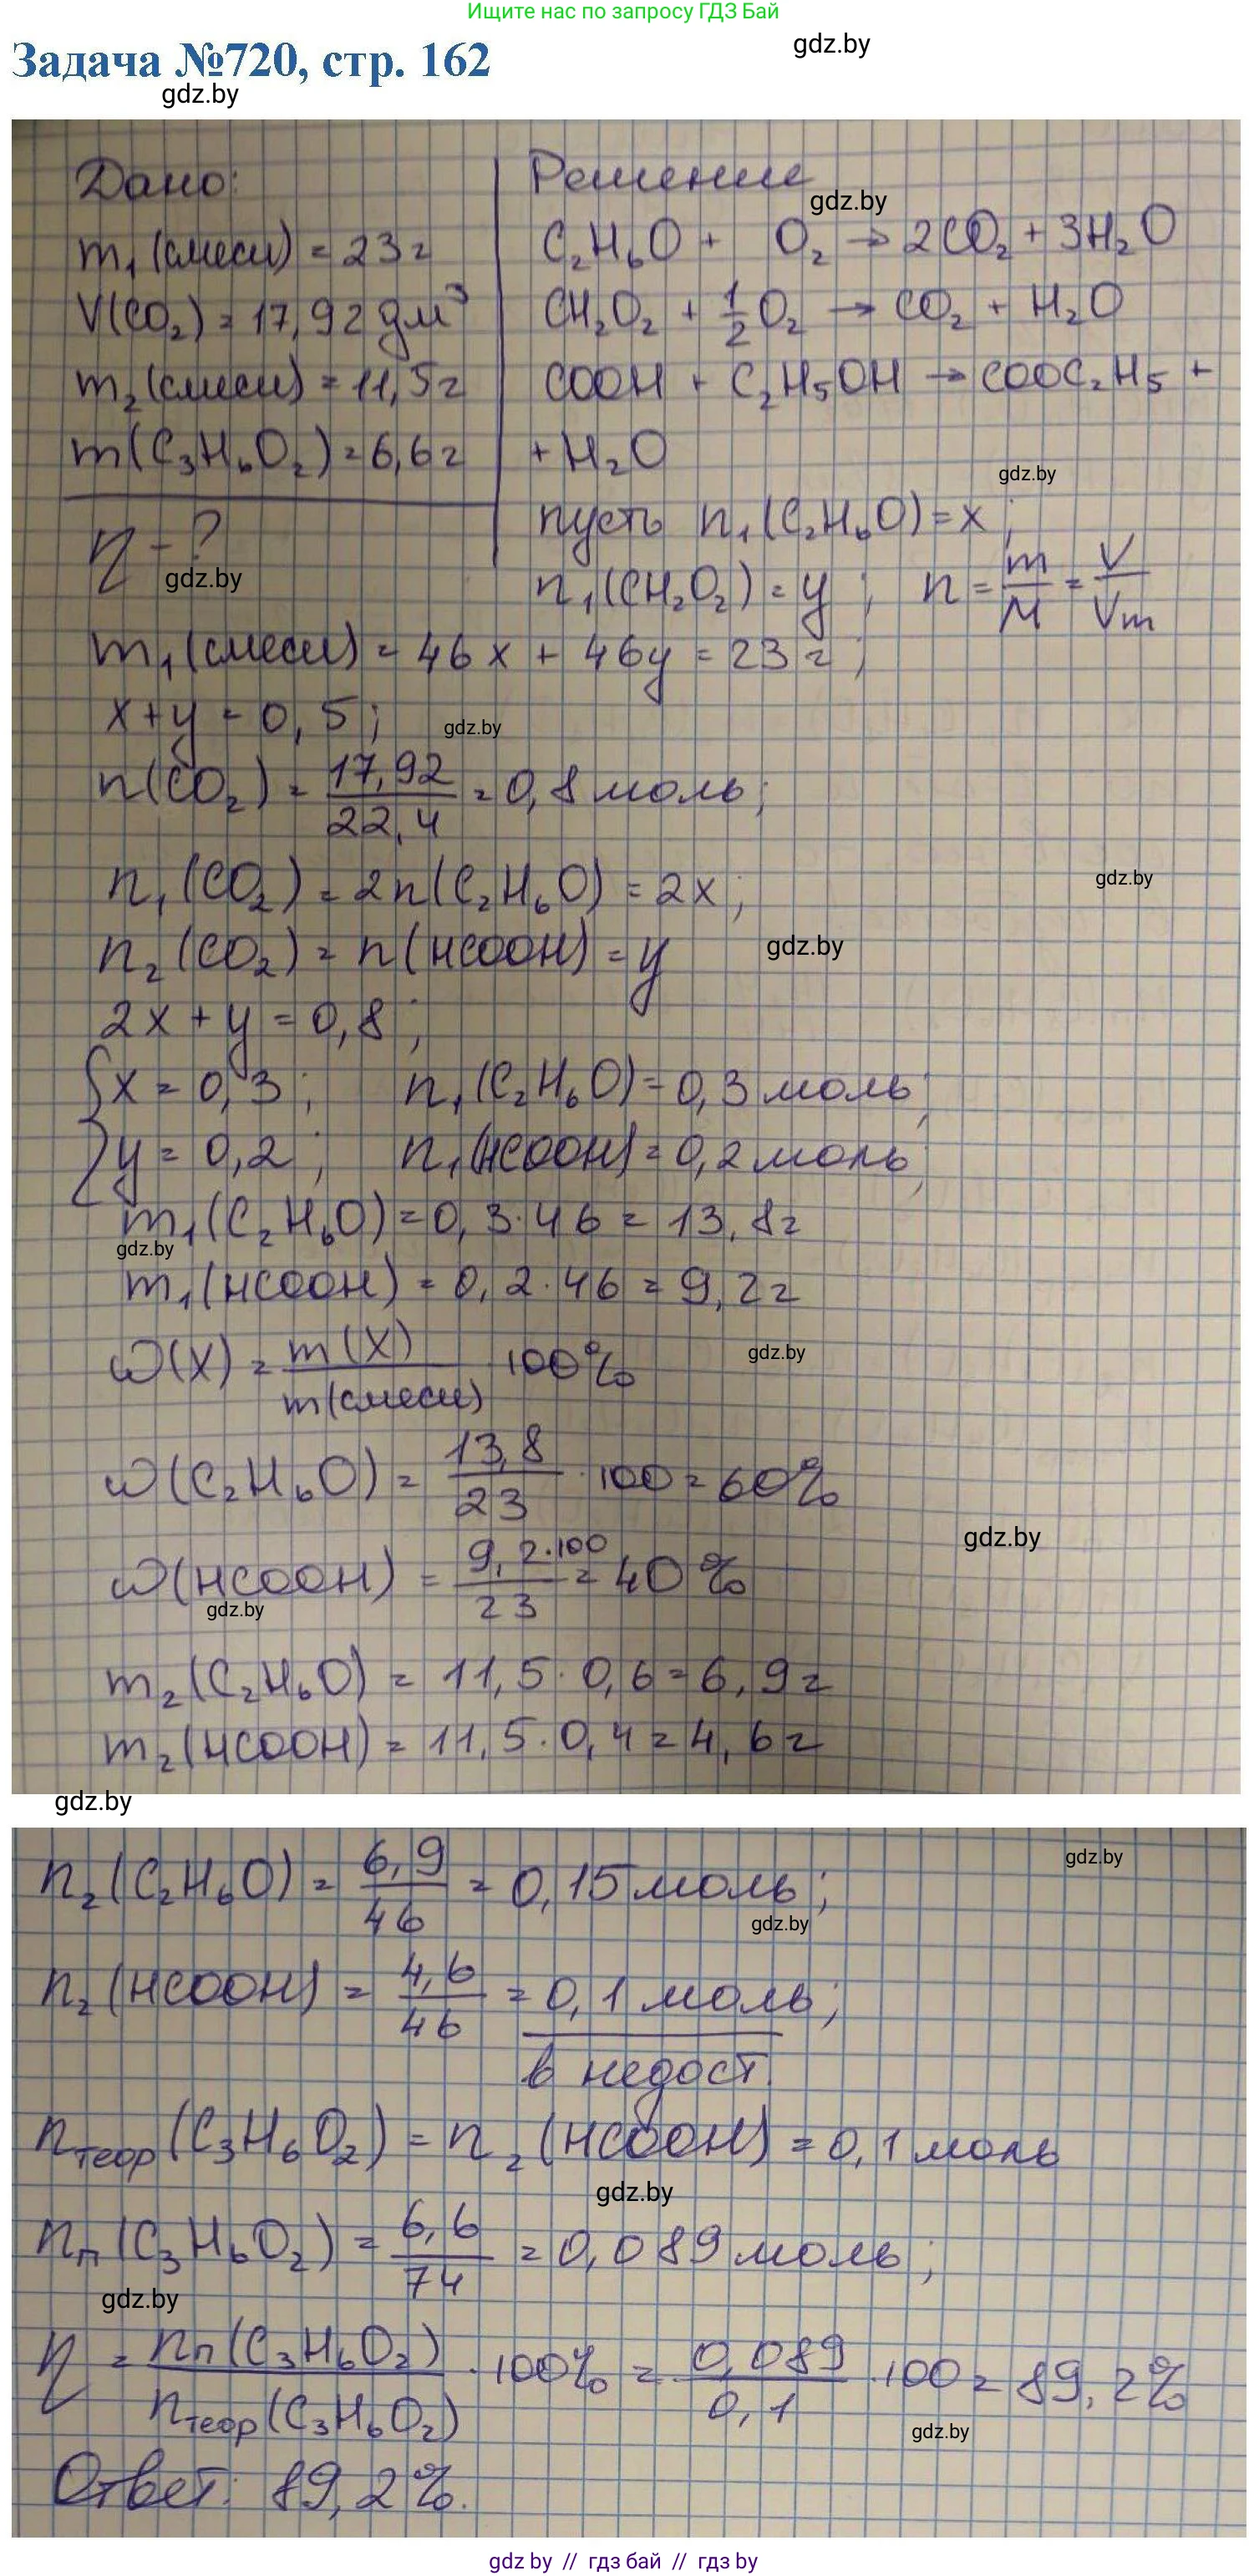 Ищите нас по запросу ГДЗ Бай
gdz.by
Задача №720, стр. 162
gdz.by
Дано:
Решение
gdz.by
m₁(смеси) = 23г
C₂H₆O + O₂ → 2CO₂ + 3H₂O
V(CO₂) = 17,92 дм³
CH₂O₂ + 1/2 O₂ → CO₂ + H₂O
m₂(смеси) = 11,5г
COOH + C₂H₅OH → COOC₂H₅ +
m(C₃H₆O₂) = 6,6г
+ H₂O
gdz.by
η - ?
пусть n₁(C₂H₆O) = x;
gdz.by
n₁(CH₂O₂) = y; n = m/M = V/Vm
m₁(смеси) = 46x + 46y = 23г;
x + y = 0,5;
gdz.by
n(CO₂) = 17,92/22,4 = 0,8 моль;
n₁(CO₂) = 2n(C₂H₆O) = 2x;
gdz.by
n₂(CO₂) = n(HCOOH) = y
gdz.by
2x + y = 0,8;
{x = 0,3; n₁(C₂H₆O) = 0,3 моль;
{y = 0,2; n₁(HCOOH) = 0,2 моль;
m₁(C₂H₆O) = 0,3·46 = 13,8г
gdz.by
m₁(HCOOH) = 0,2·46 = 9,2г
ω(X) = m(X)/m(смеси) · 100%
gdz.by
ω(C₂H₆O) = 13,8/23 · 100 = 60%
gdz.by
ω(HCOOH) = 9,2·100/23 = 40%
gdz.by
m₂(C₂H₆O) = 11,5·0,6 = 6,9г
m₂(HCOOH) = 11,5·0,4 = 4,6г
gdz.by
n₂(C₂H₆O) = 6,9/46 = 0,15 моль;
gdz.by
gdz.by
n₂(HCOOH) = 4,6/46 = 0,1 моль;
в недост.
nтеор(C₃H₆O₂) = n₂(HCOOH) = 0,1 моль
gdz.by
nп(C₃H₆O₂) = 6,6/74 = 0,089 моль;
gdz.by
η = nп(C₃H₆O₂)/nтеор(C₃H₆O₂) · 100% = 0,089/0,1 · 100 = 89,2%
gdz.by
Ответ: 89,2%.
gdz by // гдз бай // гдз by